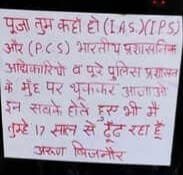 पूजा तुम कहाँ हो (I.A.S.)(I.P.S)
और (P.C.S) भारतीय प्रशासनिक
अधिकारियो व पूरे पुलिस प्रशासन
के मुँह पर थूककर आजाओ
इन सबके होते हुए भी मै
तुम्हे 17 साल से ढूँढ रहा हूँ
अरूण बिजनौर